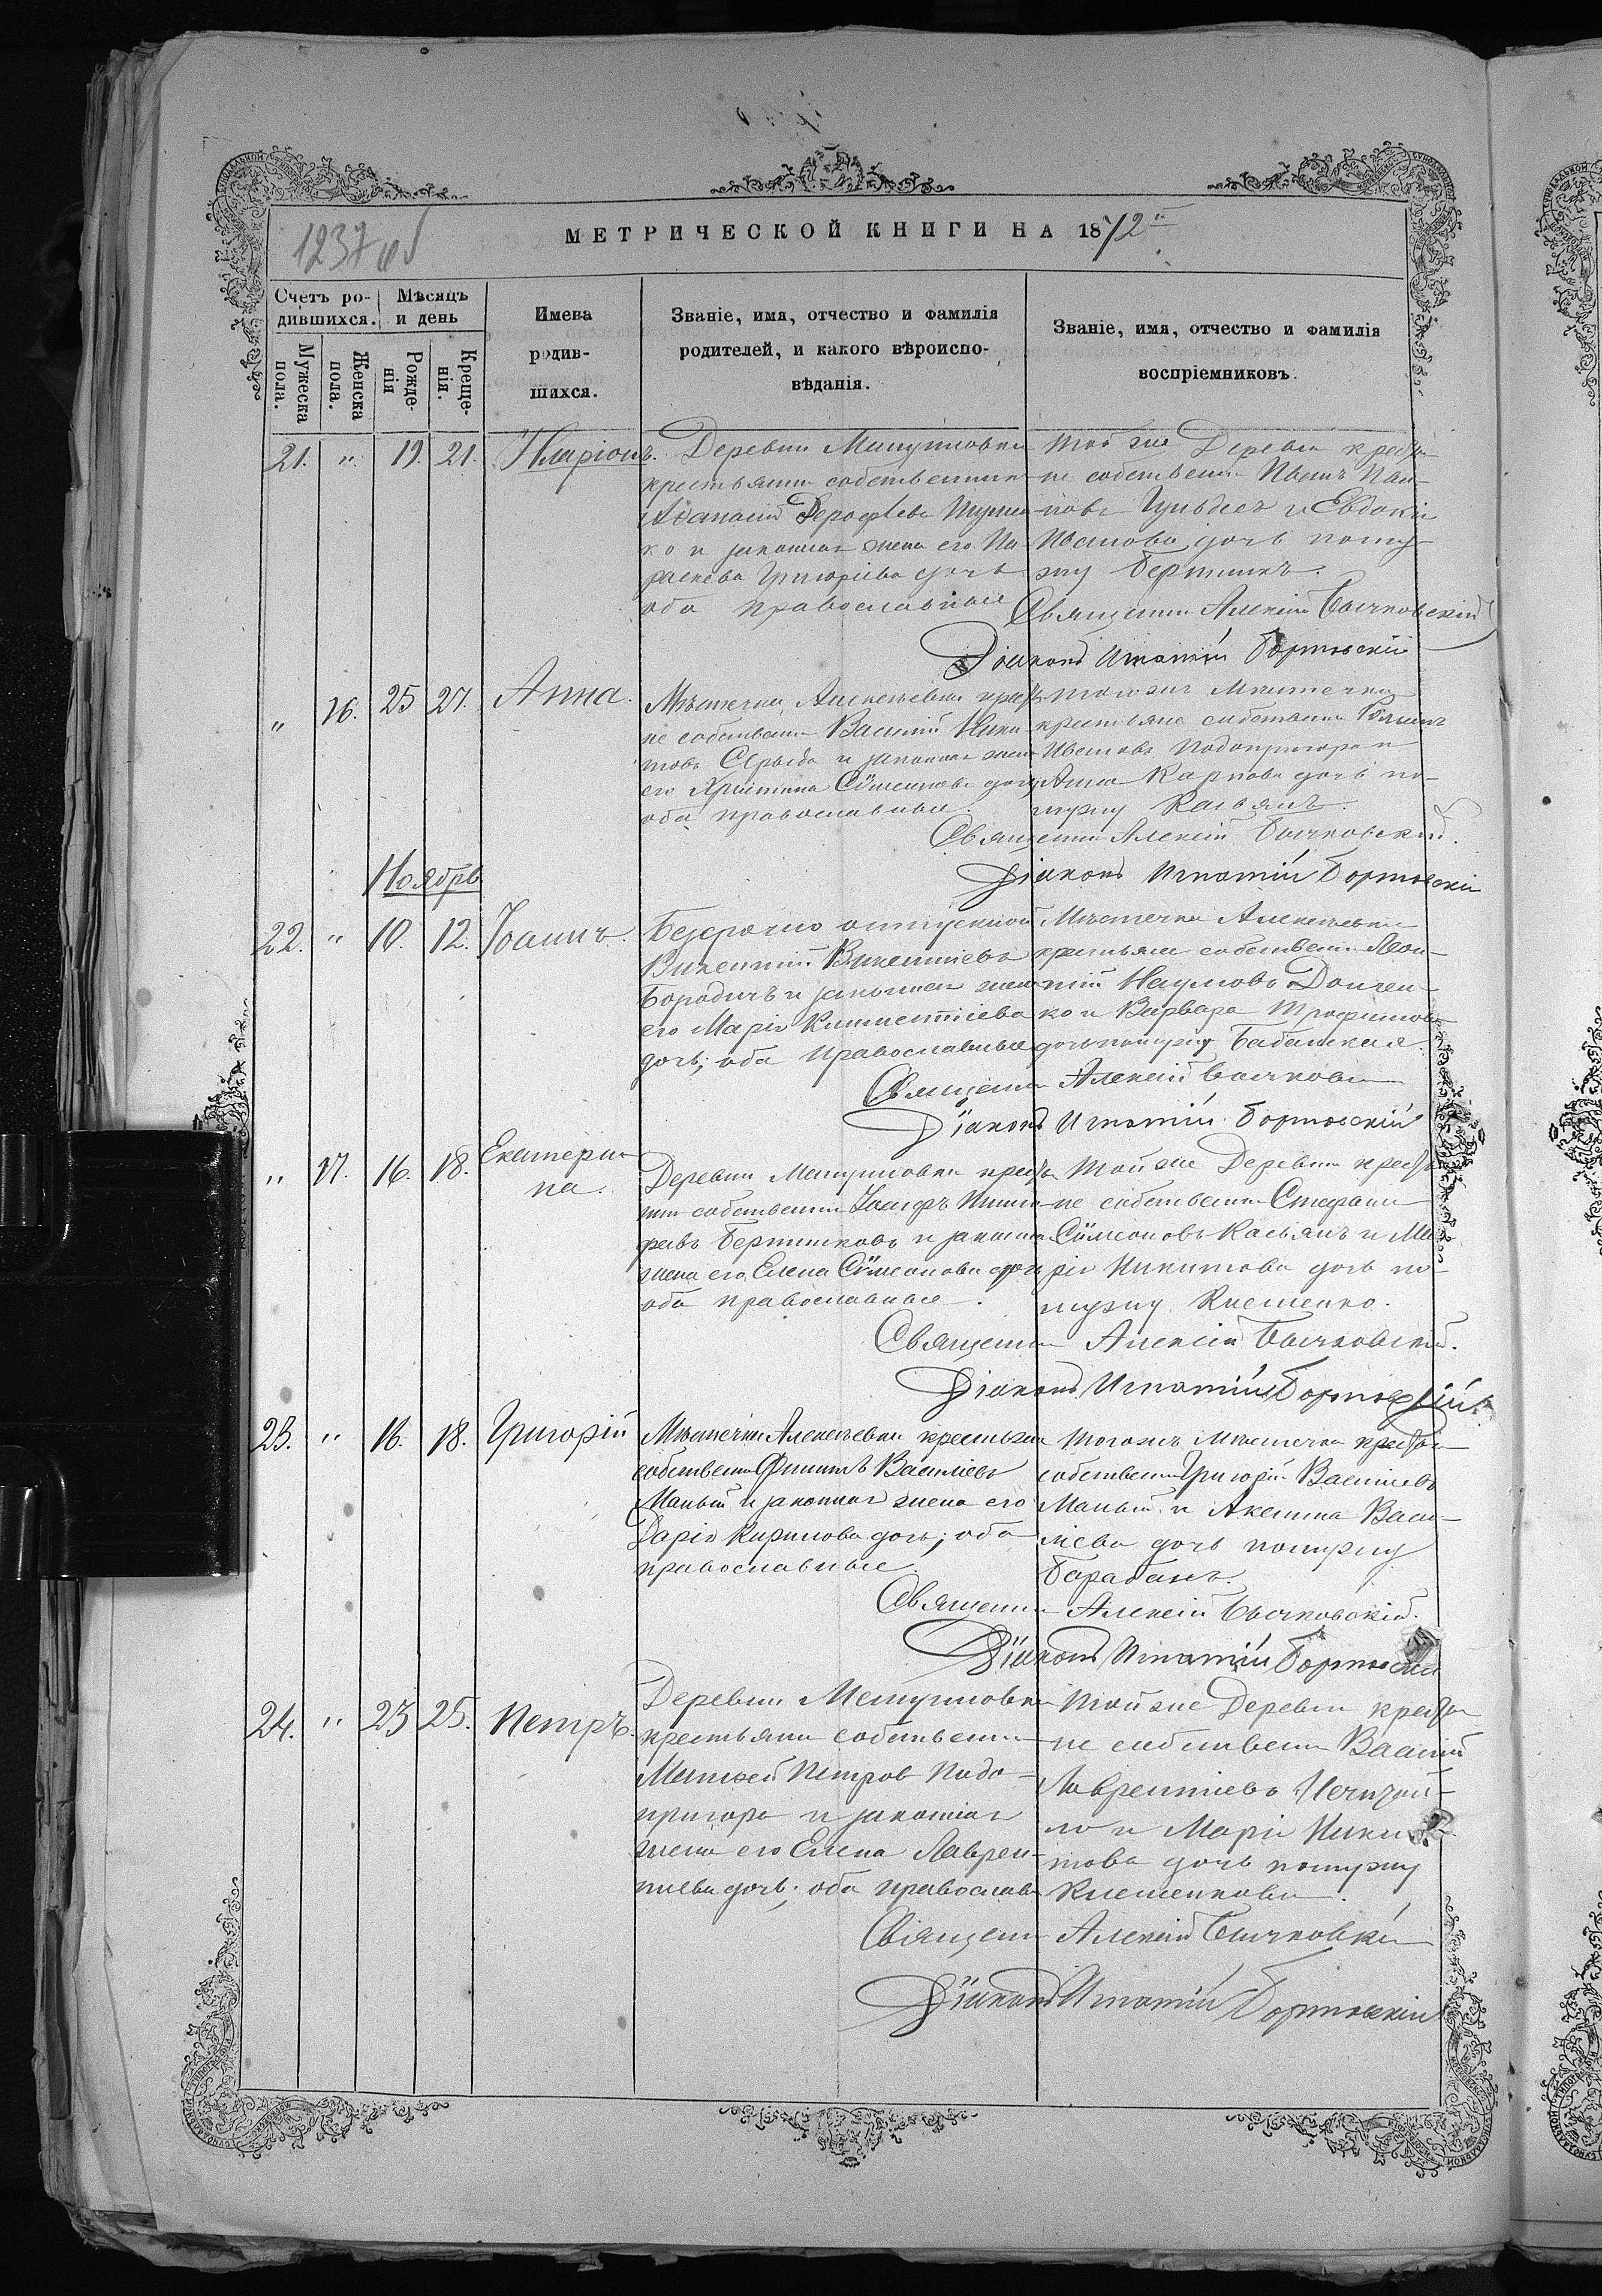 1237 об
МЕТРИЧЕСКОЙ КНИГИ НА 1872й
Счетъ родившихся.
Мѣсяцъ и день
Имена родившихся.
Званіе, имя, отчество и фамилія родителей, и какого вѣроисповѣданія.
Званіе, имя, отчество и фамилія воспріемниковъ.
Мужеска пола.
Женска пола.
Рожденія
Крещенія.
21. " 19. 21. Иларіонъ.
Деревни
крестьянин собственник
Аѳанасій Дерофѣевъ
ко и законная жена его Па-
раскева Григоріева дочь
оба православные
той же Деревни крестья-
не собственни Иванъ
и Евдокія
Иванова дочь по му-
жу
Священни Алексій Бычковскій
Діаконъ Игнатій Бортовскій
" 16. 25 27. Анна.
Мѣстечка Алексѣевки крестья
не собственни Василій Ники-
товъ и законная жена
его Христина Сѵмеонова дочь
оба православные.
тогожъ Мѣстечка
крестьяне собственни
Ивановъ Подопригора и
Анна Карпова дочь по-
мужу Касьянъ.
Священни Алексій Бычковскій.
Діаконъ Игнатій Бортовскій
Ноябрь
22. " 10. 12. Іоаннъ.
Безсрочно отпускной
Викентій Викентіевъ
Бородичъ и законная жена
его Марія Климентіева
дочь; оба Православные
Мѣстечка Алексѣевки
крестьяне собственни Леон-
тій Наумовъ Дончен-
ко и Варвара Трофимова
дочь по мужу Бабанская
Священни Алексій Бычковс
Діаконъ Игнатій Бортовскій
" 17. 16. 18. Екатери-
на.
Деревни крестья
нин собственни Іосифъ
и законна
жена его Елена Сѵмеонова дочь
оба православные.
Той же Деревни крестья
не собственни Стефанъ
Сѵмеоновъ Касьянъ и Ма-
рія Никитова дочь по-
мужу Клеменко.
Священни Алексій Бычковскій.
Діаконъ Игнатій Бортовскій.
23. " 16. 18. Григорій
Мѣстечка Алексѣевки крестьян
собственни Филипъ Василіевъ
Малый и законная жена его
Дарія Кирилова дочь; оба
православные.
тогожъ Мѣстечка крестьян
собственни Григорій Василіевъ
Малый и Акелина Васи-
ліева дочь по мужу
Барабанъ.
Священни Алексій Бычковскій.
Діаконъ Игнатій Бортовскій
24. " 23 25. Петръ.
Деревни
крестьянин собственни
Матвей Петров Подо-
пригора и законная
жена его Елена Лаврен-
тиева дочь; оба православн
Той же Деревни крестья
не собственни Василій
Лаврентіевъ
ло и Марія Ники-
това дочь по мужу
Клеменкова.
Священни Алексій Бычковскій
Діаконъ Игнатій Бортовскій